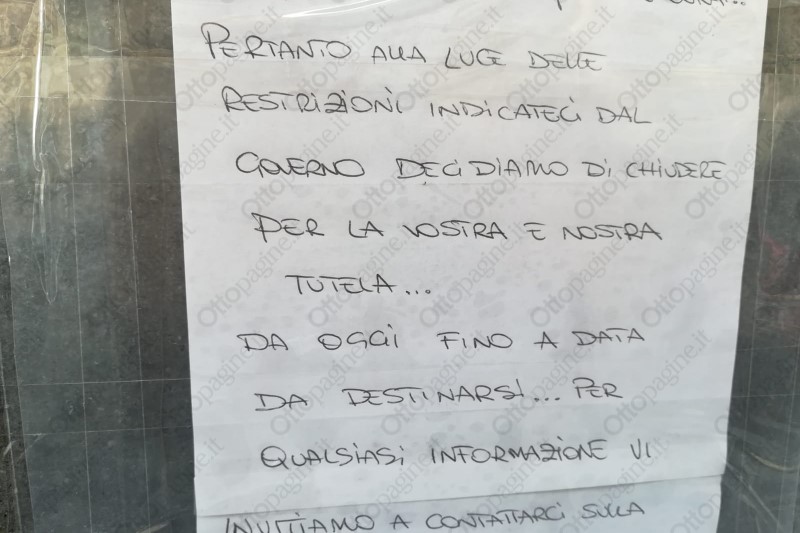 PERTANTO ALLA LUCE DELLE
RESTRIZIONI INDICATECI DAL
GOVERNO DECIDIAMO DI CHIUDERE
PER LA VOSTRA E NOSTRA
TUTELA...
DA OGGI FINO A DATA
DA DESTINARSI... PER
QUALSIASI INFORMAZIONE VI
INVITIAMO A CONTATTARCI SULLA
Ottopagine.it